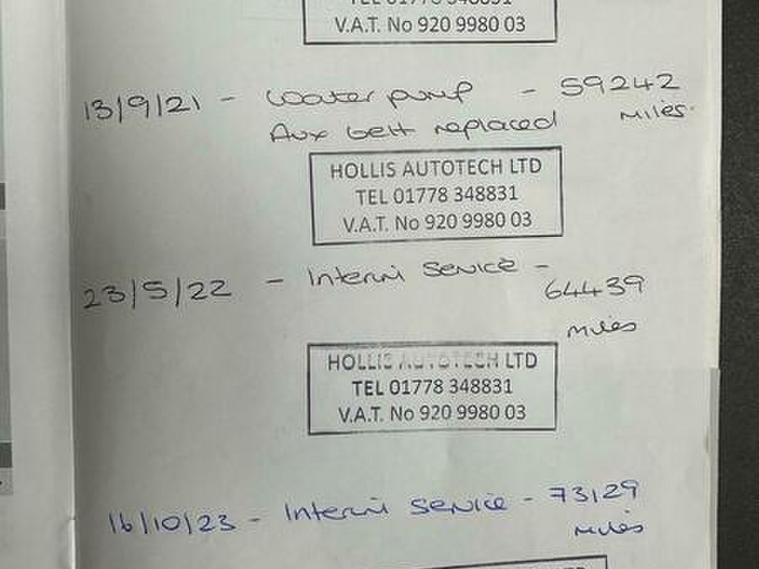 V.A.T. No 920 9980 03
13/9/21 - Water pump - 59242
Aux belt replaced miles.
HOLLIS AUTOTECH LTD
TEL 01778 348831
V.A.T. No 920 9980 03
23/5/22 - Interim Service -
64439
miles
HOLLIS AUTOTECH LTD
TEL 01778 348831
V.A.T. No 920 9980 03
16/10/23 - Interim Service - 73129
miles